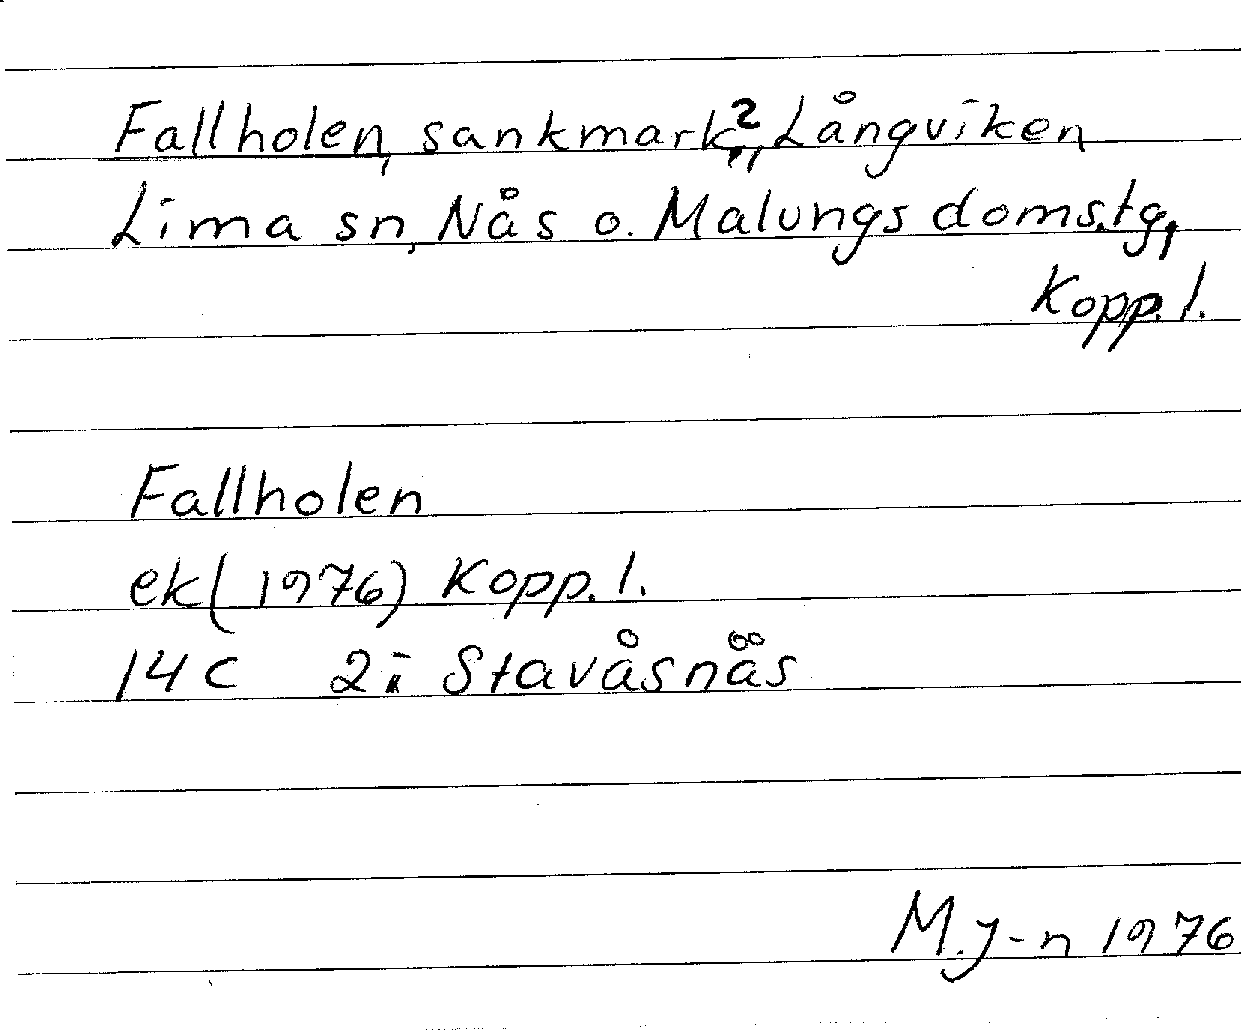 Fallholen, sankmark?, Långviken
Lima sn, Nås o. Malungs doms.tg,
Kopp. l.
Fallholen
ek (1976) Kopp. l.
14 C 2 i Stavåsnäs
M. J-n 1976